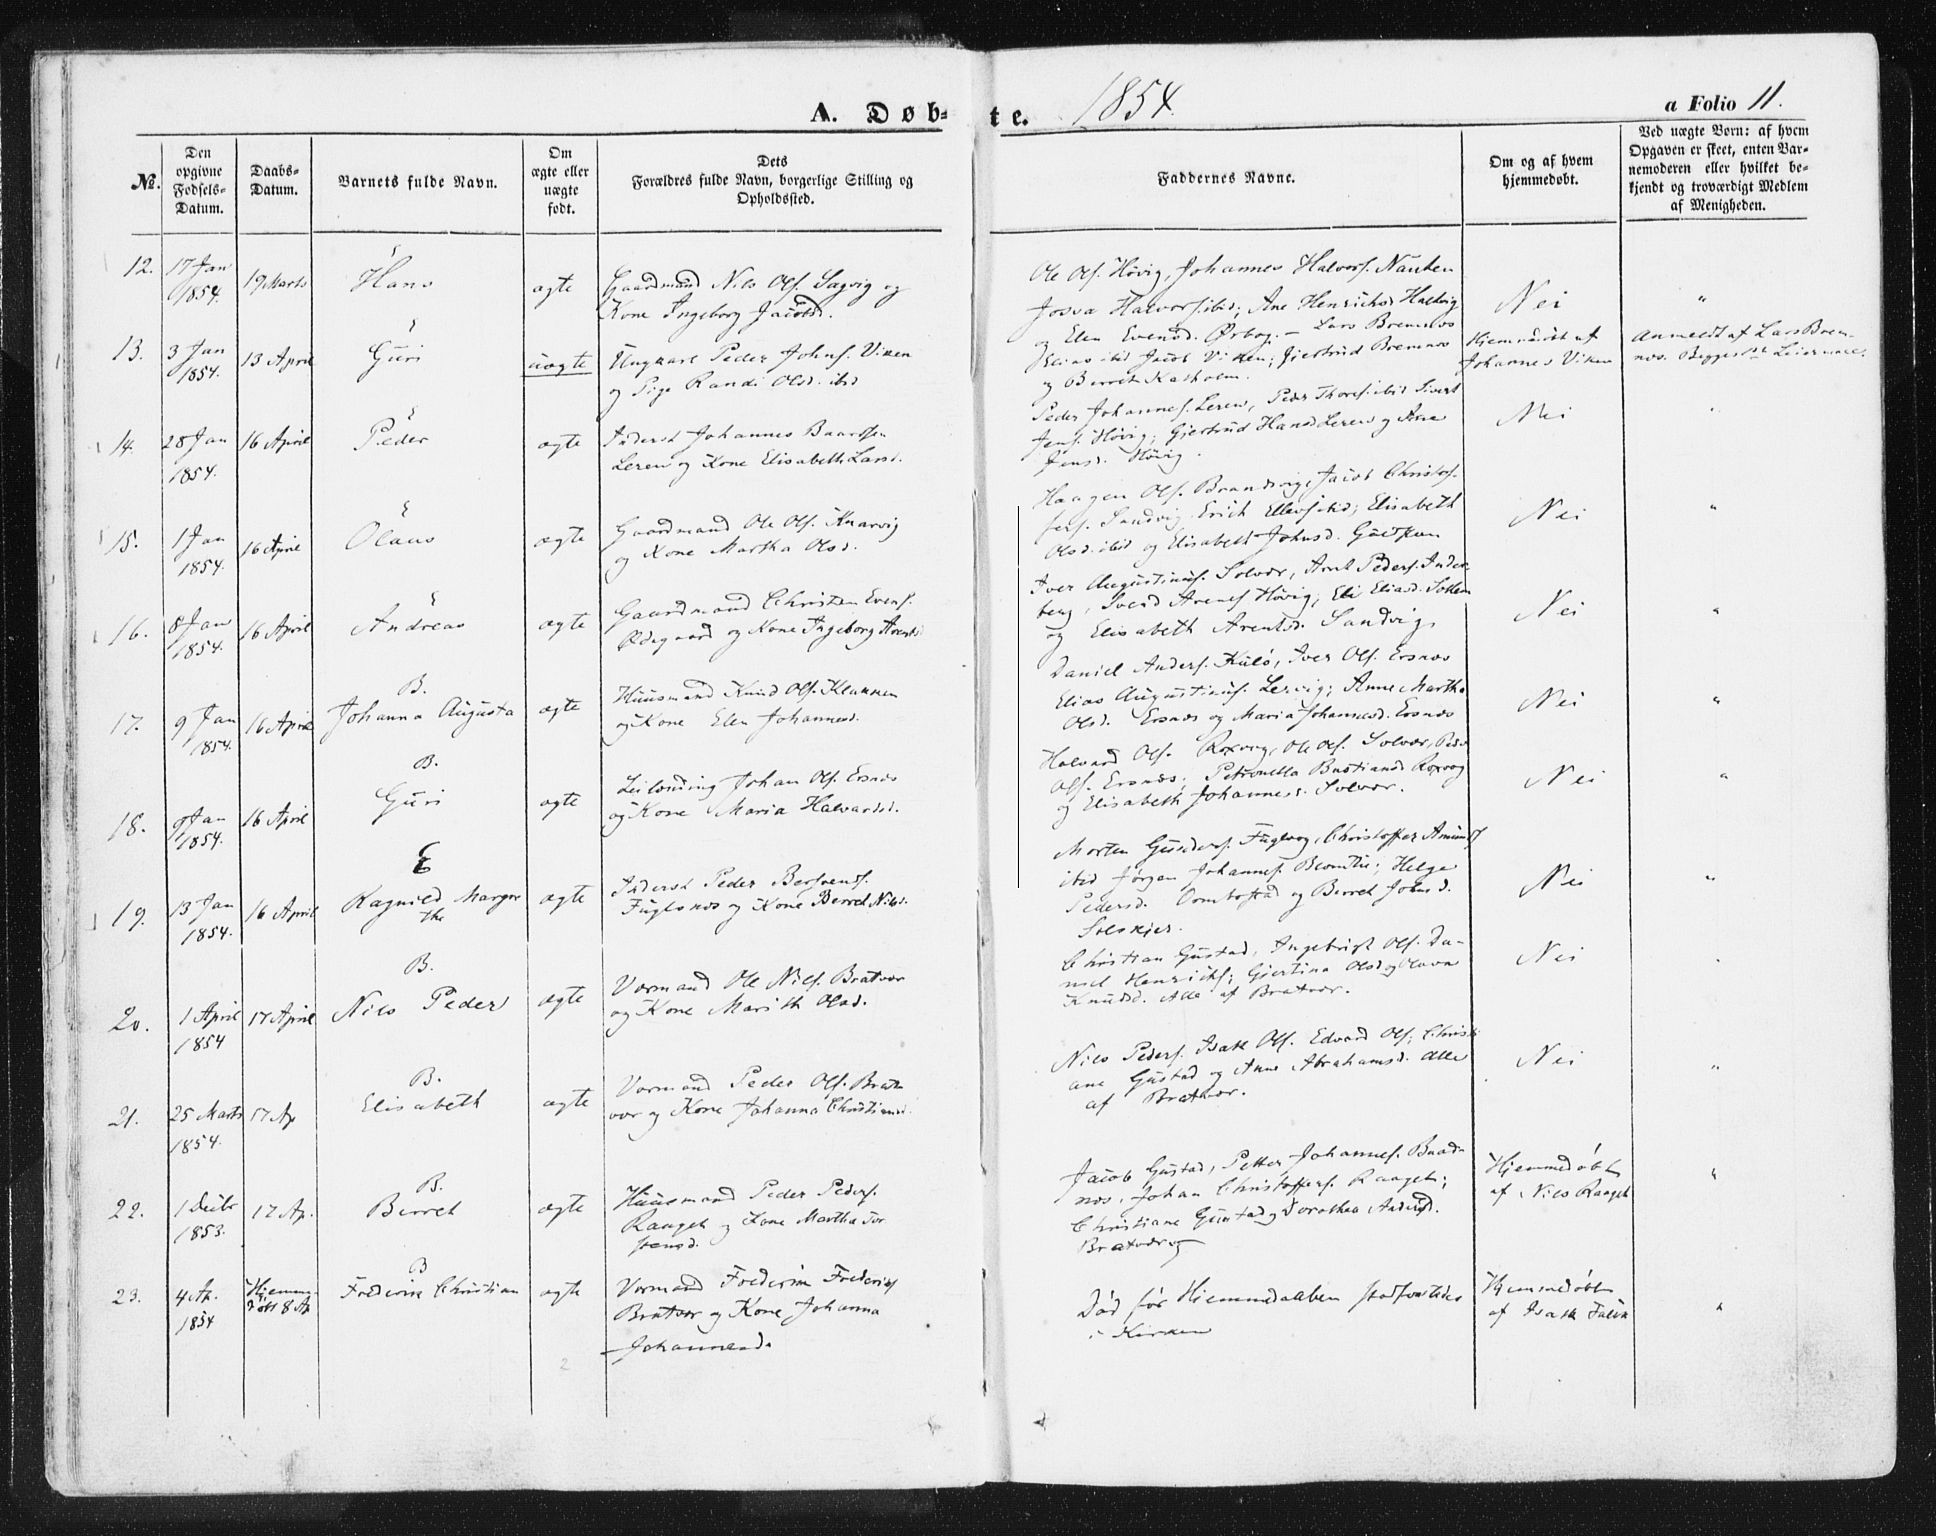 A. Døb-
te. 1854.
a Folio 11.
№.
Den opgivne Fødsels-Datum.
Daabs-Datum.
Barnets fulde Navn.
Om ægte eller uægte født.
Dets Forældres fulde Navn, borgerlige Stilling og Opholdssted.
Faddernes Navne.
Om og af hvem hjemmedøbt.
Ved uægte Børn: af hvem Opgaven er skeet, enten Barnemoderen eller hvilket bekjendt og troværdigt Medlem af Menigheden.
12. 17 Jan 1854. 19 Marts
E
Hans
ægte
Gaardmand Nils Ols. Sagvig og
Kone Ingeborg Jacobsd.
Ole Ols. Høvig, Johannes Halvors. Nausten
Josva Halvors. ibid; Ane Henrichsd
og Elen Evensd.
Nei
"
13. 3 Jan 1854. 13 April
E
Guri
uægte
Ungkarl Peder Johns. Viken
og Pige Randi Olsd. ibid
Lars Bremnes
Elias ibid Jacob Viken; Gjertrud Bremnes
og Berret
Hjemmedøbt af
Johannes Viken
Anmeldt af Lars Brem-
nes. Begges 1ste Leiermaal.
14. 28 Jan 1854. 16 April
E
Peder
ægte
Inderst Johannes Baardsen
Leren og Kone Elisabeth Larsd.
Peder Johannes. Leren, Peder Thores. ibid Sivert
Jens. Høvig; Gjertrud Hansd Leren og Ane
Jensd. Høvig.
Nei
"
15. 1 Jan 1854. 16 April
E
Olaus
ægte
Gaardmand Ole Ols. Knarvig
og Kone Martha Olsd.
Haagen Ols. Brandvig, Jacob Christof-
fers. Sandvig Erich Ellefs. ibid; Elisabeth
Olsd. ibid og Elisabeth Johnsd.
Nei
"
16. 8 Jan 1854. 16 April
E
Andreas
ægte
Gaardmand Christen Evens.
Ødegaard og Kone Ingeborg Arentsd.
Iver Augustinus. Solvær, Arnt Peders.
Svend Arents. Høvig; Eli Eliasd.
og Elisabeth Arentsd. Sandvig
Nei
"
17. 9 Jan 1854. 16 April
B.
Johanna Augusta
ægte
Huusmand Knud Ols. Klakken
og Kone Elen Johannesd.
Daniel Anders. Kulø, Iver Ols. Ersnes
Elias Augustinus. Lervig; Anne Martha
Olsd. Ersnes og Maria Johannesd. Ersnes
Nei
"
18. 9 Jan 1854. 16 April
B.
Guri
ægte
Leilænding Johan Ols. Ersnes
og Kone Maria Halvardsd.
Halvard Ols. Roxvog, Ole Ols. Solvær, Peder
Ols. Ersnes; Petronella Bastiansd Roxvog
og Elisabeth Johannesd. Solvær.
Nei
"
19. 13 Jan 1854. 16 April
E
Ragnild Margre
the
ægte
Inderst Peder Bersvends.
Fuglsnes og Kone Berret Nilsd.
Morten Fuglvog, Christoffer Amunds
ibid Jørgen Johannes. ; Helge
Pedersd. og Berret Johnsd.
Solskjer.
Nei
"
20. 1 April 1854 17 April
B.
Nils Peder
ægte
Vormand Ole Nils. Bratvær
og Kone Marith Olsd.
Christian Gustad, Ingebrigt Ols. Da-
niel Henriks; Gjertina Olsd og Olava
Knudsd. Alle af Bratvær.
Nei
21. 25 Marts 1854. 17 Ap
B.
Elisabeth
ægte
Vormand Peder Ols. Brat-
vær og Kone Johanna Christiansd.
Nils Peders. Isak Ols. Edvard Ols; Christi
ane Gustad og Anne Abrahamsd. alle
af Bratvær.
Nei
"
22. 1 Decbr 1853. 17 Ap.
B.
Berret
ægte
Huusmand Peder Peders.
Raaget og Kone Martha Tor
stensd.
Jacob Gustad, Petter Johannes. Baad-
nes, Johan Christoffers. Raaget;
Christiane Gustad og Dorothea Andersd.
Bratværog
Hjemmedøbt
af Nils Raaget
"
23. 4 Ap. 1854 Hjemme-
døbt 8 Ap
B
Frederik Christian
ægte
Vormand Frederik Frederiks
Bratvær og Kone Johanna
Johannesd.
Død før Hjemmedaaben stadfæstedes
i Kirken
Hjemmedøbt
af Isak Falck
"
2